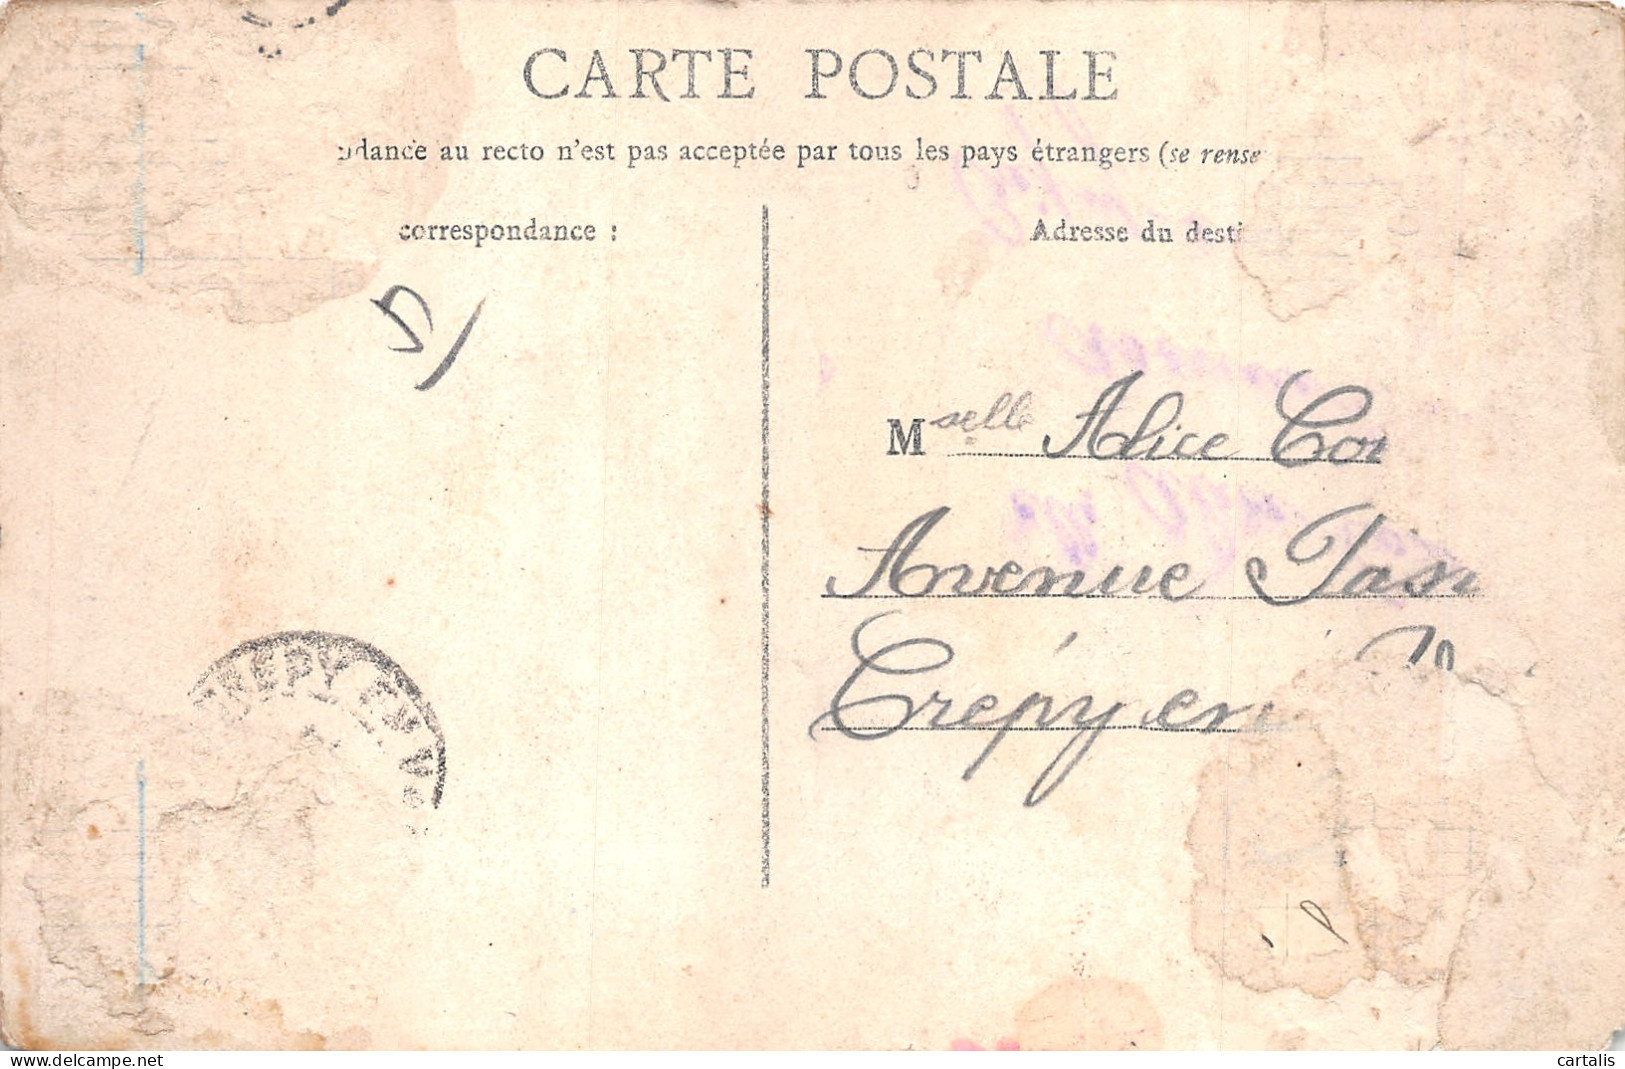 CARTE POSTALE
dance au recto n'est pas acceptée par tous les pays étrangers (se rense
correspondance :
Adresse du desti
Mselle Alice Cor
Avenue
Crépy en
CREPY EN VA
cartalis